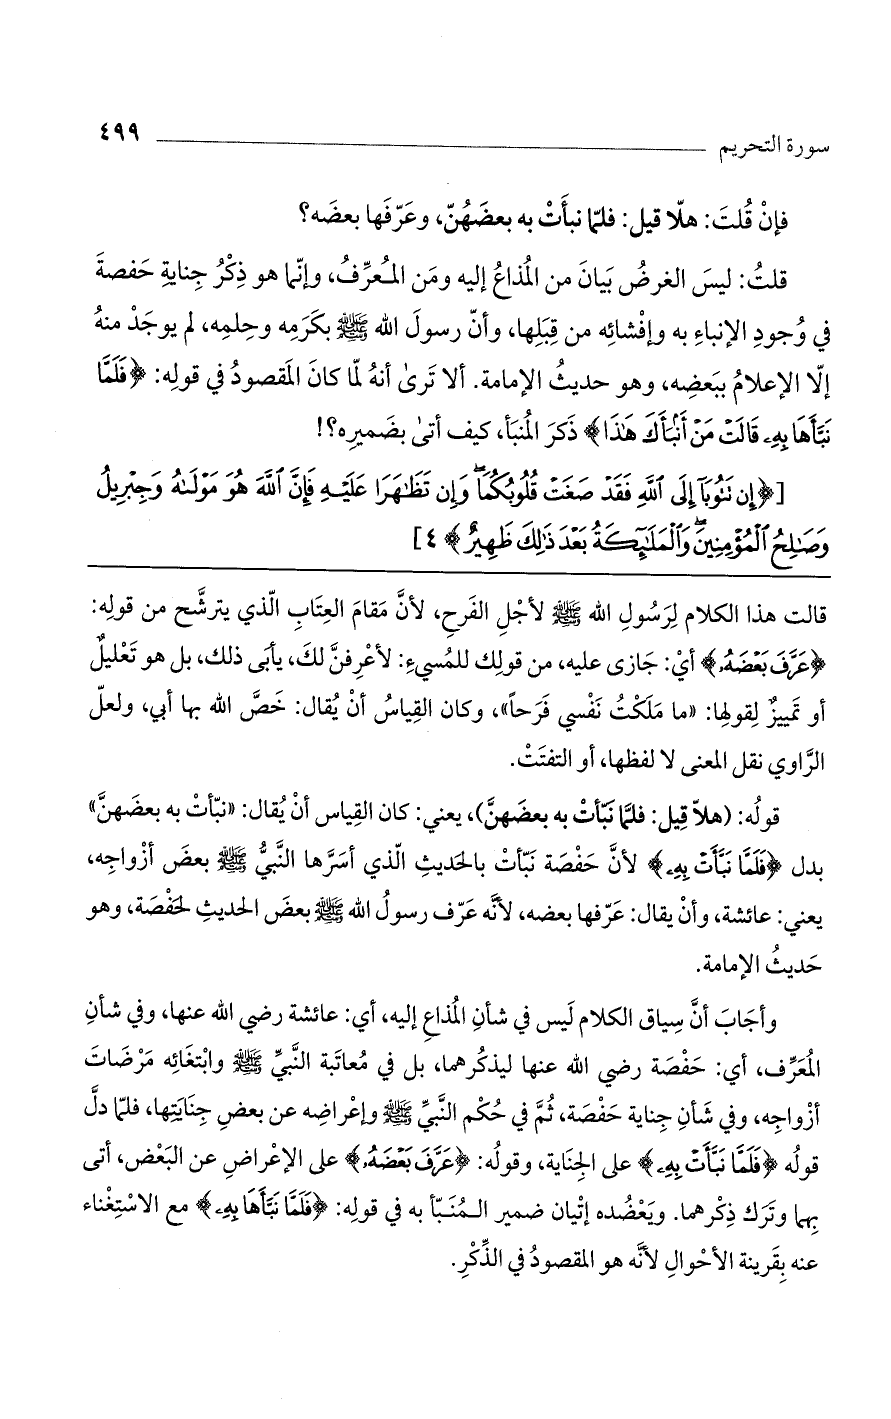 سورة التحريم ٤٩٩
فإنْ قُلتَ: هلّا قيل: فلمّا نبأَتْ به بعضَهُنّ، وعَرّفَها بعضَه؟
قلتُ: ليسَ الغرضُ بَيانَ من المُذاعُ إليه ومَن المُعرِّفُ، وإنّما هو ذِكْرُ جِنايةِ حَفصةَ
في وُجودِ الإنباءِ به وإفْشائِه من قِبَلِها، وأنّ رسولَ الله ﷺ بكَرَمِه وحِلمِه، لم يوجَدْ منهُ
إلّا الإعلامُ ببَعضِه، وهو حديثُ الإمامة. ألا تَرىٰ أنهُ لمّا كانَ المَقصودُ في قولِه: ﴿فَلَمَّا
نَبَّأَهَا بِهِۦ قَالَتْ مَنْ أَنۢبَأَكَ هَٰذَا﴾ ذَكَرَ المُنبَأ، كيف أتىٰ بضَميرِه؟!
[﴿إِن تَتُوبَآ إِلَى ٱللَّهِ فَقَدْ صَغَتْ قُلُوبُكُمَا ۖ وَإِن تَظَٰهَرَا عَلَيْهِ فَإِنَّ ٱللَّهَ هُوَ مَوْلَىٰهُ وَجِبْرِيلُ
وَصَٰلِحُ ٱلْمُؤْمِنِينَ ۖ وَٱلْمَلَٰٓئِكَةُ بَعْدَ ذَٰلِكَ ظَهِيرٌ﴾ ٤]
قالت هذا الكلام لِرَسُولِ الله ﷺ لأجْلِ الفَرحِ، لأنَّ مَقامَ العِتَابِ الّذي يترشَّح من قولِه:
﴿عَرَّفَ بَعْضَهُۥ﴾ أيْ: جَازى عليه، من قولِك للمُسيءِ: لأعْرِفنَّ لكَ، يأبَى ذلك، بل هو تَعْليلٌ
أو تَمييزٌ لِقولِها: «ما مَلَكْتُ نَفْسي فَرَحاً»، وكان القِياسُ أنْ يُقال: خَصَّ الله بها أبي، ولعلّ
الرَّاوي نقل المعنى لا لفظها، أو التفتَتْ.
قولُه: (هلاّ قِيل: فلمَّا نَبّأتْ به بعضَهنَّ)، يعني: كان القِياس أنْ يُقال: «نبّأتْ به بعضهنَّ»
بدل ﴿فَلَمَّا نَبَّأَتْ بِهِۦ﴾ لأنَّ حَفْصَة نَبّأتْ بالحَديثِ الّذي أسَرَّها النَّبيُّ ﷺ بعضَ أزْواجِه،
يعني: عائشة، وأنْ يقال: عَرّفها بعضه، لأنَّه عَرّف رسولُ الله ﷺ بعضَ الحديثِ لحَفْصَة، وهو
حَديثُ الإمامة.
وأجَابَ أنَّ سِياق الكلام لَيس في شأنِ المُذاعِ إليه، أي: عائشة رضي الله عنها، وفي شأنِ
المُعَرِّف، أي: حَفْصَة رضي الله عنها ليذكُرهما، بل في مُعاتَبة النَّبيِّ ﷺ وابْتغَائِه مَرْضَاتَ
أزْواجِه، وفي شأنِ جِناية حَفْصَة، ثُمَّ في حُكْم النَّبيِّ ﷺ وإعْراضِه عن بعضِ جِنَايَتِها، فلمّا دلَّ
قولُه ﴿فَلَمَّا نَبَّأَتْ بِهِۦ﴾ على الجِنَاية، وقولُه: ﴿عَرَّفَ بَعْضَهُۥ﴾ على الإعْراضِ عن البَعْض، أتى
بِهما وتَرَك ذِكْرهما. ويَعْضُده إتْيان ضمير المُنَبّأ به في قولِه: ﴿فَلَمَّا نَبَّأَهَا بِهِۦ﴾ مع الاسْتِغْناء
عنه بِقَرينة الأحْوالِ لأنَّه هو المقصودُ في الذِّكْرِ.